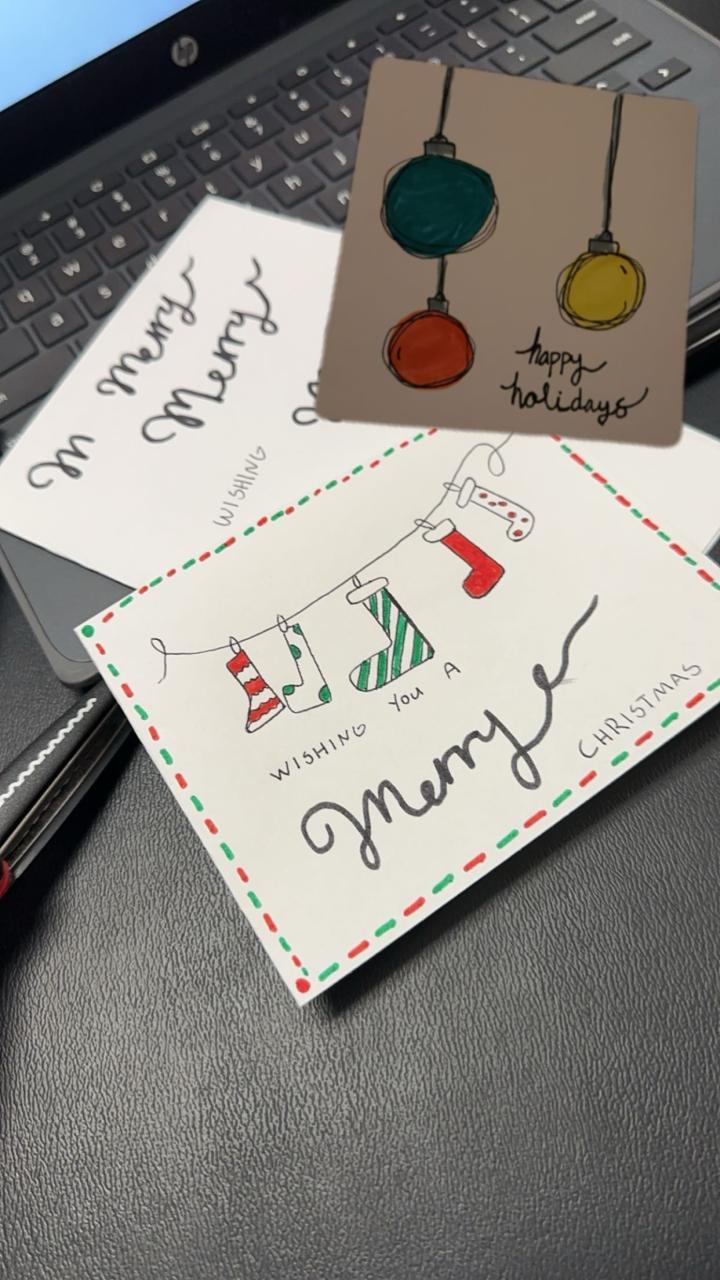 hp
happy
holidays
m Merry
Merry
WISHING
WISHING YOU A
Merry
CHRISTMAS